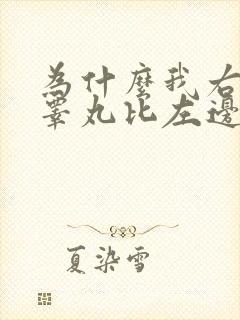 為什麼我右
睪丸比左邊
夏染雪